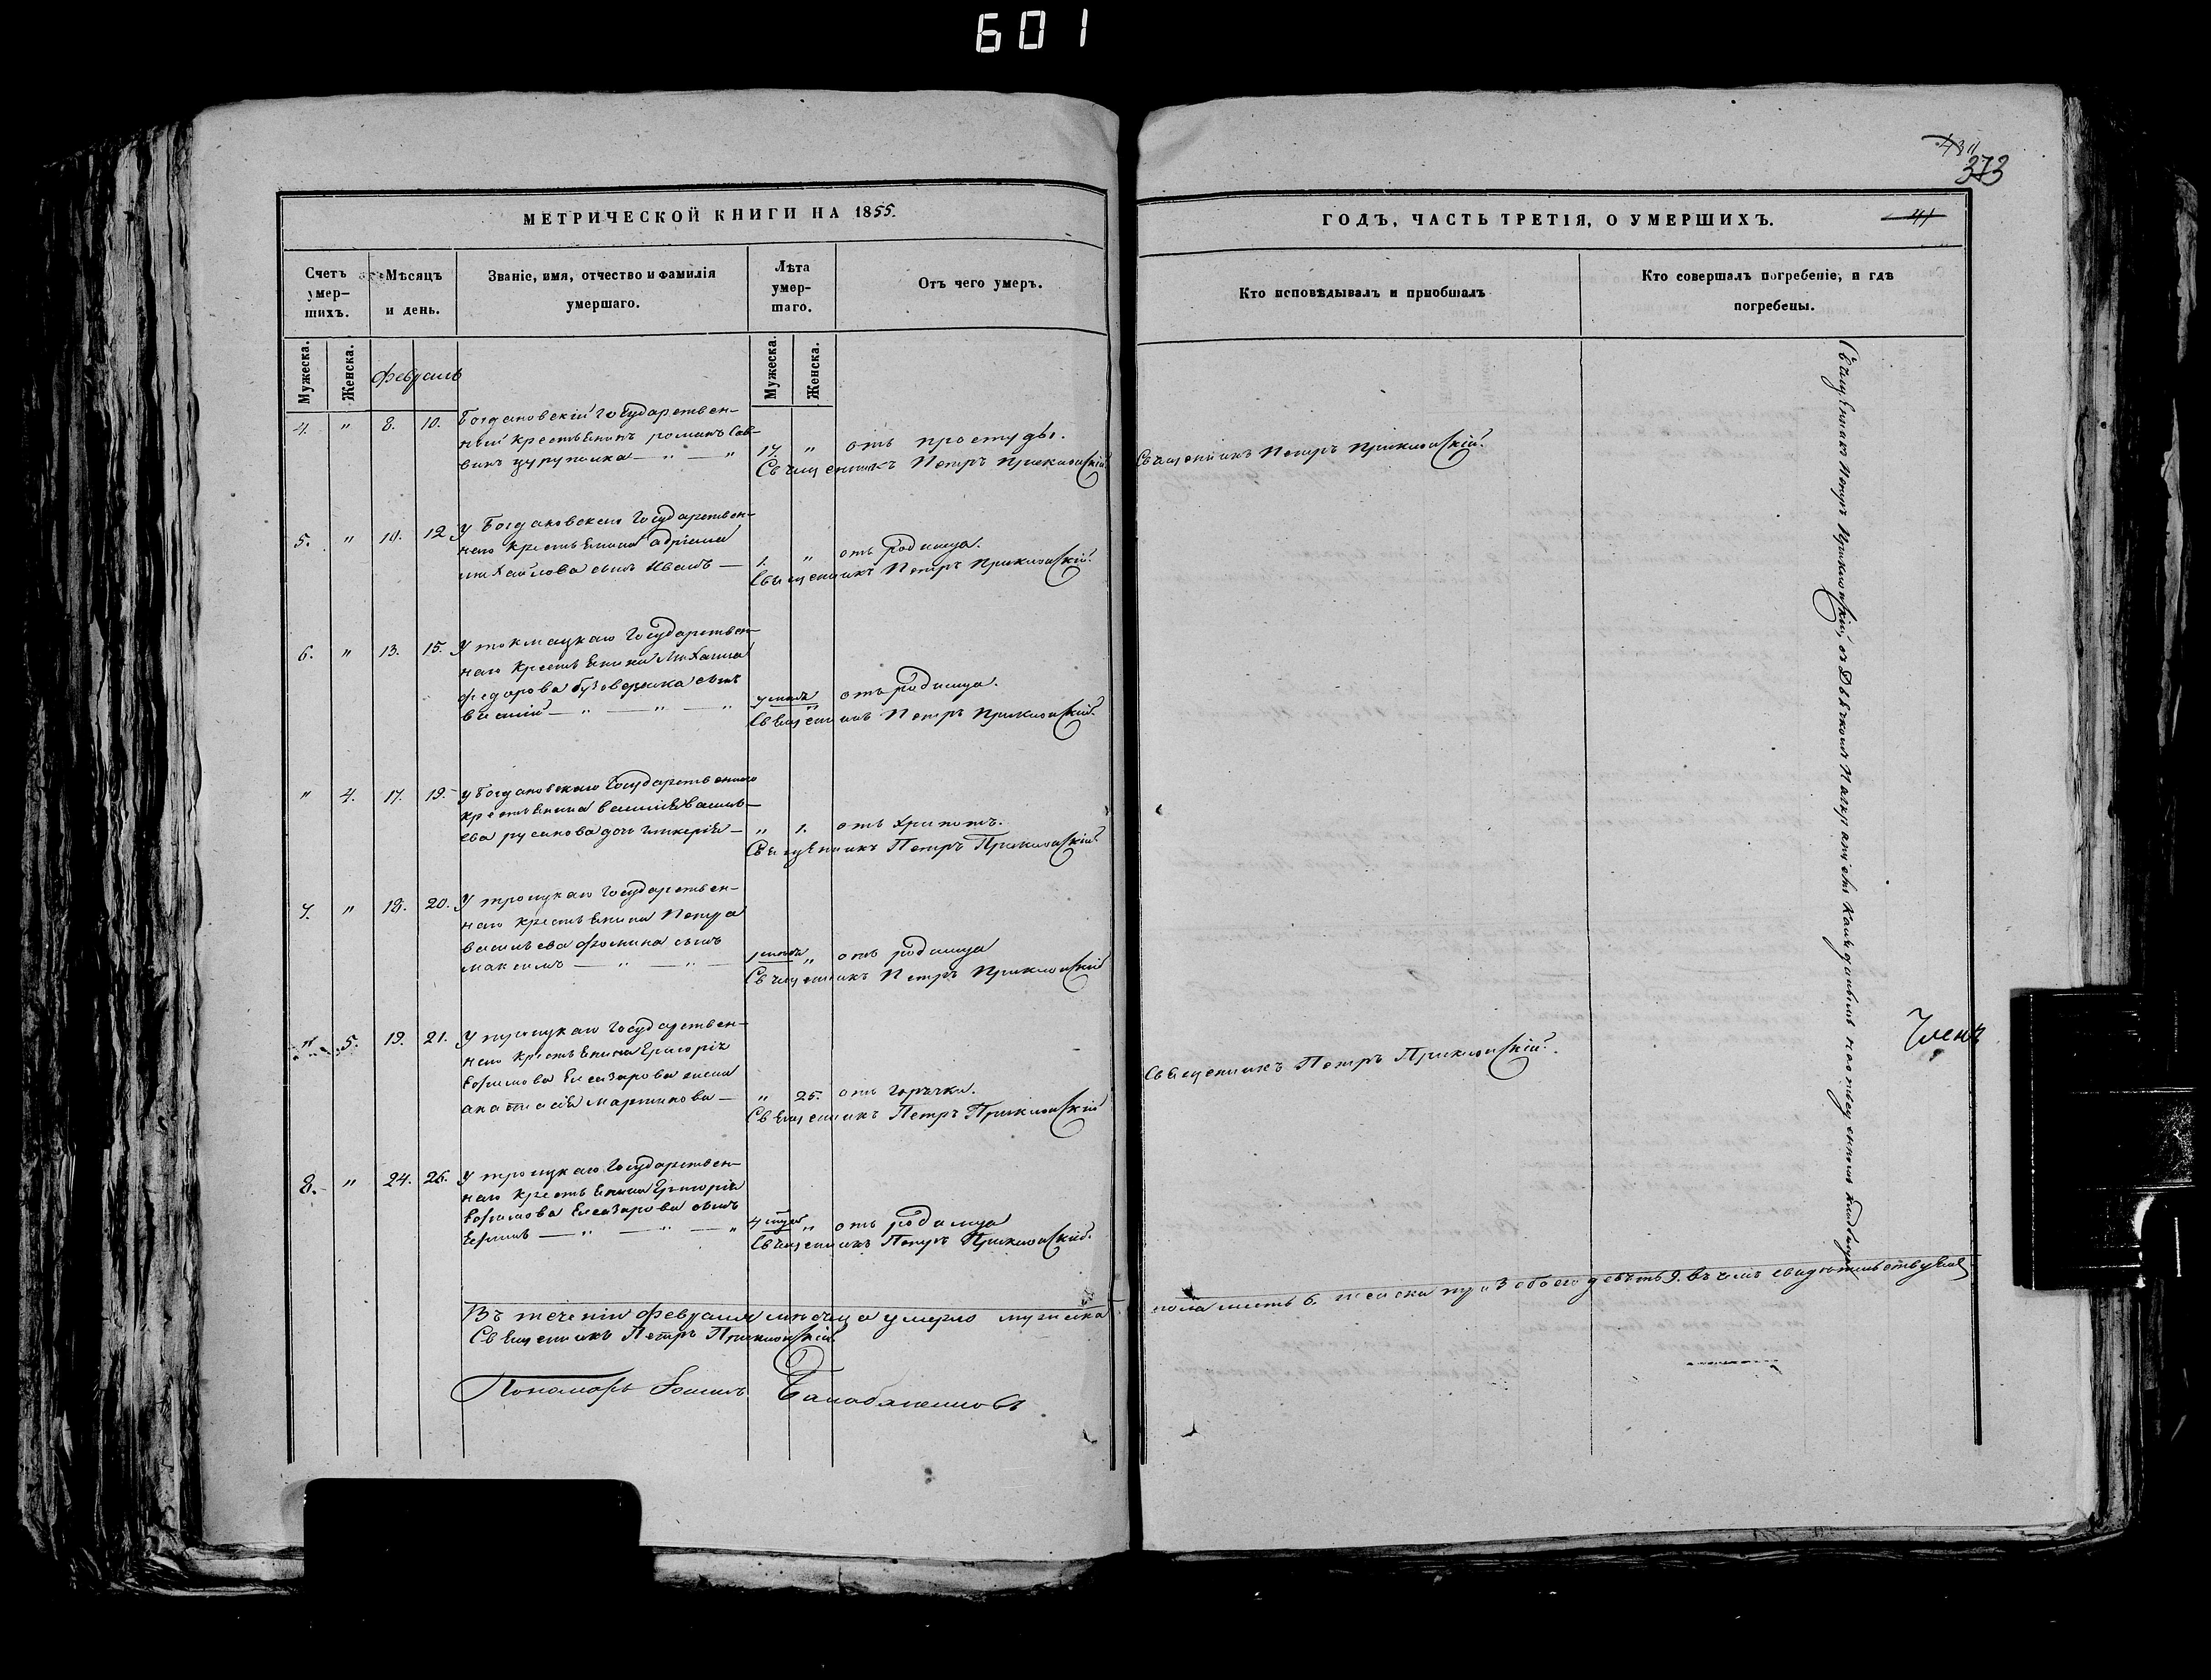 601
373
МЕТРИЧЕСКОЙ КНИГИ НА 1855.
Счетъ умер-
шихъ.
Мѣсяцъ
и день.
Званіе, имя, отчество и фамилія
умершаго.
Лѣта
умер-
шаго.
Отъ чего умеръ.
Мужеска.
Женска.
Февраль
Мужеска.
Женска.
4. " 8. 10. Богдановскій Государствен-
ный крестьянинъ романъ Сав-
винъ цурупалка — " — " 17. " отъ простуды.
Священникъ Петръ Приклонскій
5. " 10. 12 У Богдановскаго Государствен-
наго крестьянина адріана
михайлова сынъ Иванъ — 1. " отъ родимца.
Священникъ Петръ Приклонскій.
6. " 13. 15. У токмацкаго Государствен-
наго крестьянина Михаила
федорова сынъ
— " — " — " " отъ родимца.
Священникъ Петръ Приклонскій.
" 4. 17. 19. У Богдановскаго Государственнаго
крестьянина василія василь-
ева русинова дочь гликерія — " 1. отъ хрипотъ.
Священникъ Петръ Приклонскій
7. " 18. 20. У троицкаго Государствен-
наго крестьянина Петра
васильева фомина сынъ
максимъ — " — " — " отъ родимца
Священникъ Петръ Приклонскій
" 5. 19. 21. У троицкаго Государствен-
наго крестьянина Григорія
Ефимова Елеазарова жена
анастасія мартинова — " 25. отъ горячки.
Священникъ Петръ Приклонскій
8. " 24. 26. У троицкаго Государствен-
наго крестьянина Григорія
Ефимова Елеазарова сынъ
Ефимъ — " — " — " " отъ родимца
Священникъ Петръ Приклонскій.
Въ теченіи февраля мѣсяца умерло мужеска
Священникъ Петръ Приклонскій
Пономарь
ГОДЪ, ЧАСТЬ ТРЕТІЯ, О УМЕРШИХЪ.
41
Кто исповѣдывалъ и пріобщалъ
Кто совершалъ погребеніе, и гдѣ
погребены.
Священникъ Петръ Приклонскій.
Священникъ Петръ Приклонскій.
Священникъ Петръ Приклонскій, съ Дьячкомъ на кладбищѣ
Членъ
пола шесть 6. женска три 3 обоего девять 9. въ чемъ свидѣтельствуемъ